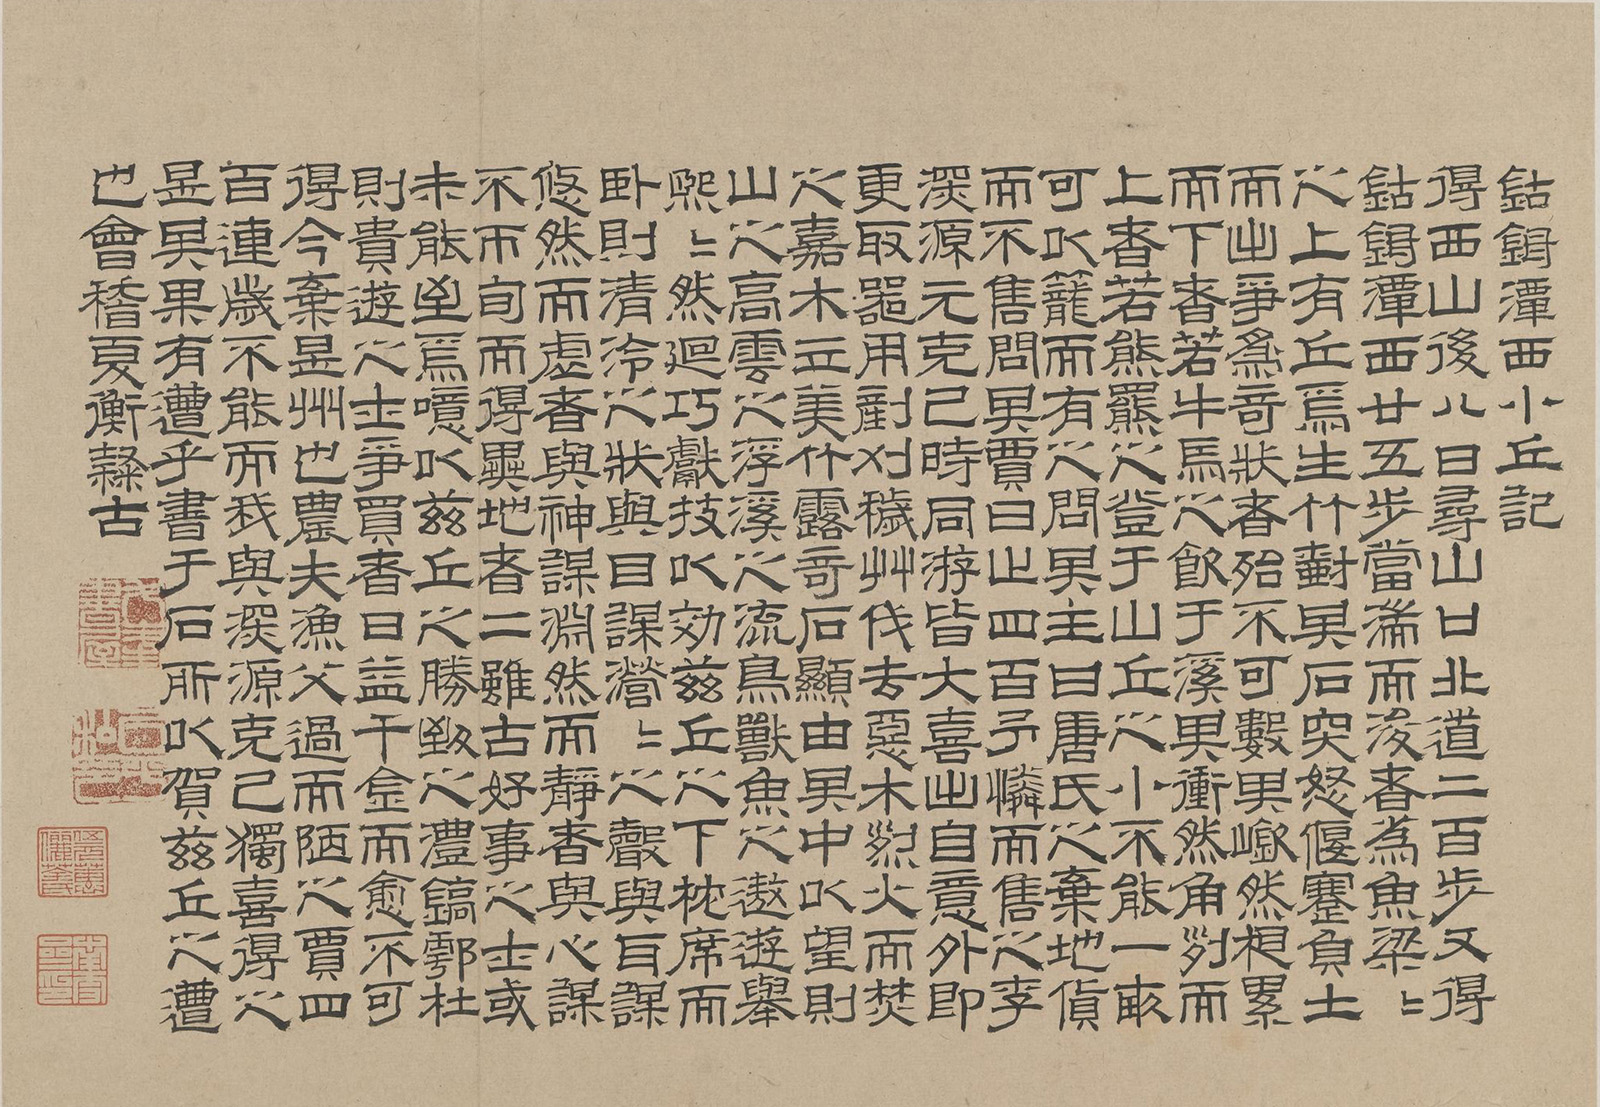 鈷鉧潭西小丘記
得西山後八日尋山口北道二百步又得
鈷鉧潭西廿五步當湍而浚者為魚梁〻
之上有丘焉生竹樹其石突怒偃蹇負土
而出爭為奇狀者殆不可數其嶔然相累
而下者若牛馬之飲于溪其衝然角列而
上者若熊羆之登于山丘之小不能一畝
可以籠而有之問其主曰唐氏之棄地貨
而不售問其賈曰止四百予憐而售之李
深源元克己時同游皆大喜出自意外即
更取器用剷刈穢艸伐去惡木烈火而焚
之嘉木立美竹露奇石顯由其中以望則
山之高雲之浮溪之流鳥獸魚之遨遊舉
熙〻然迴巧獻技以効茲丘之下枕席而
臥則清泠之狀與目謀瀯〻之聲與耳謀
悠然而虛者與神謀淵然而靜者與心謀
不帀旬而得異地者二雖古好事之士或
未能至焉噫以茲丘之勝致之灃鎬鄠杜
則貴遊之士爭買者日益千金而愈不可
得今棄是州也農夫漁父過而陋之賈四
百連歲不能而我與深源克己獨喜得之
是其果有遭乎書于石所以賀茲丘之遭
也會稽夏衡隸古